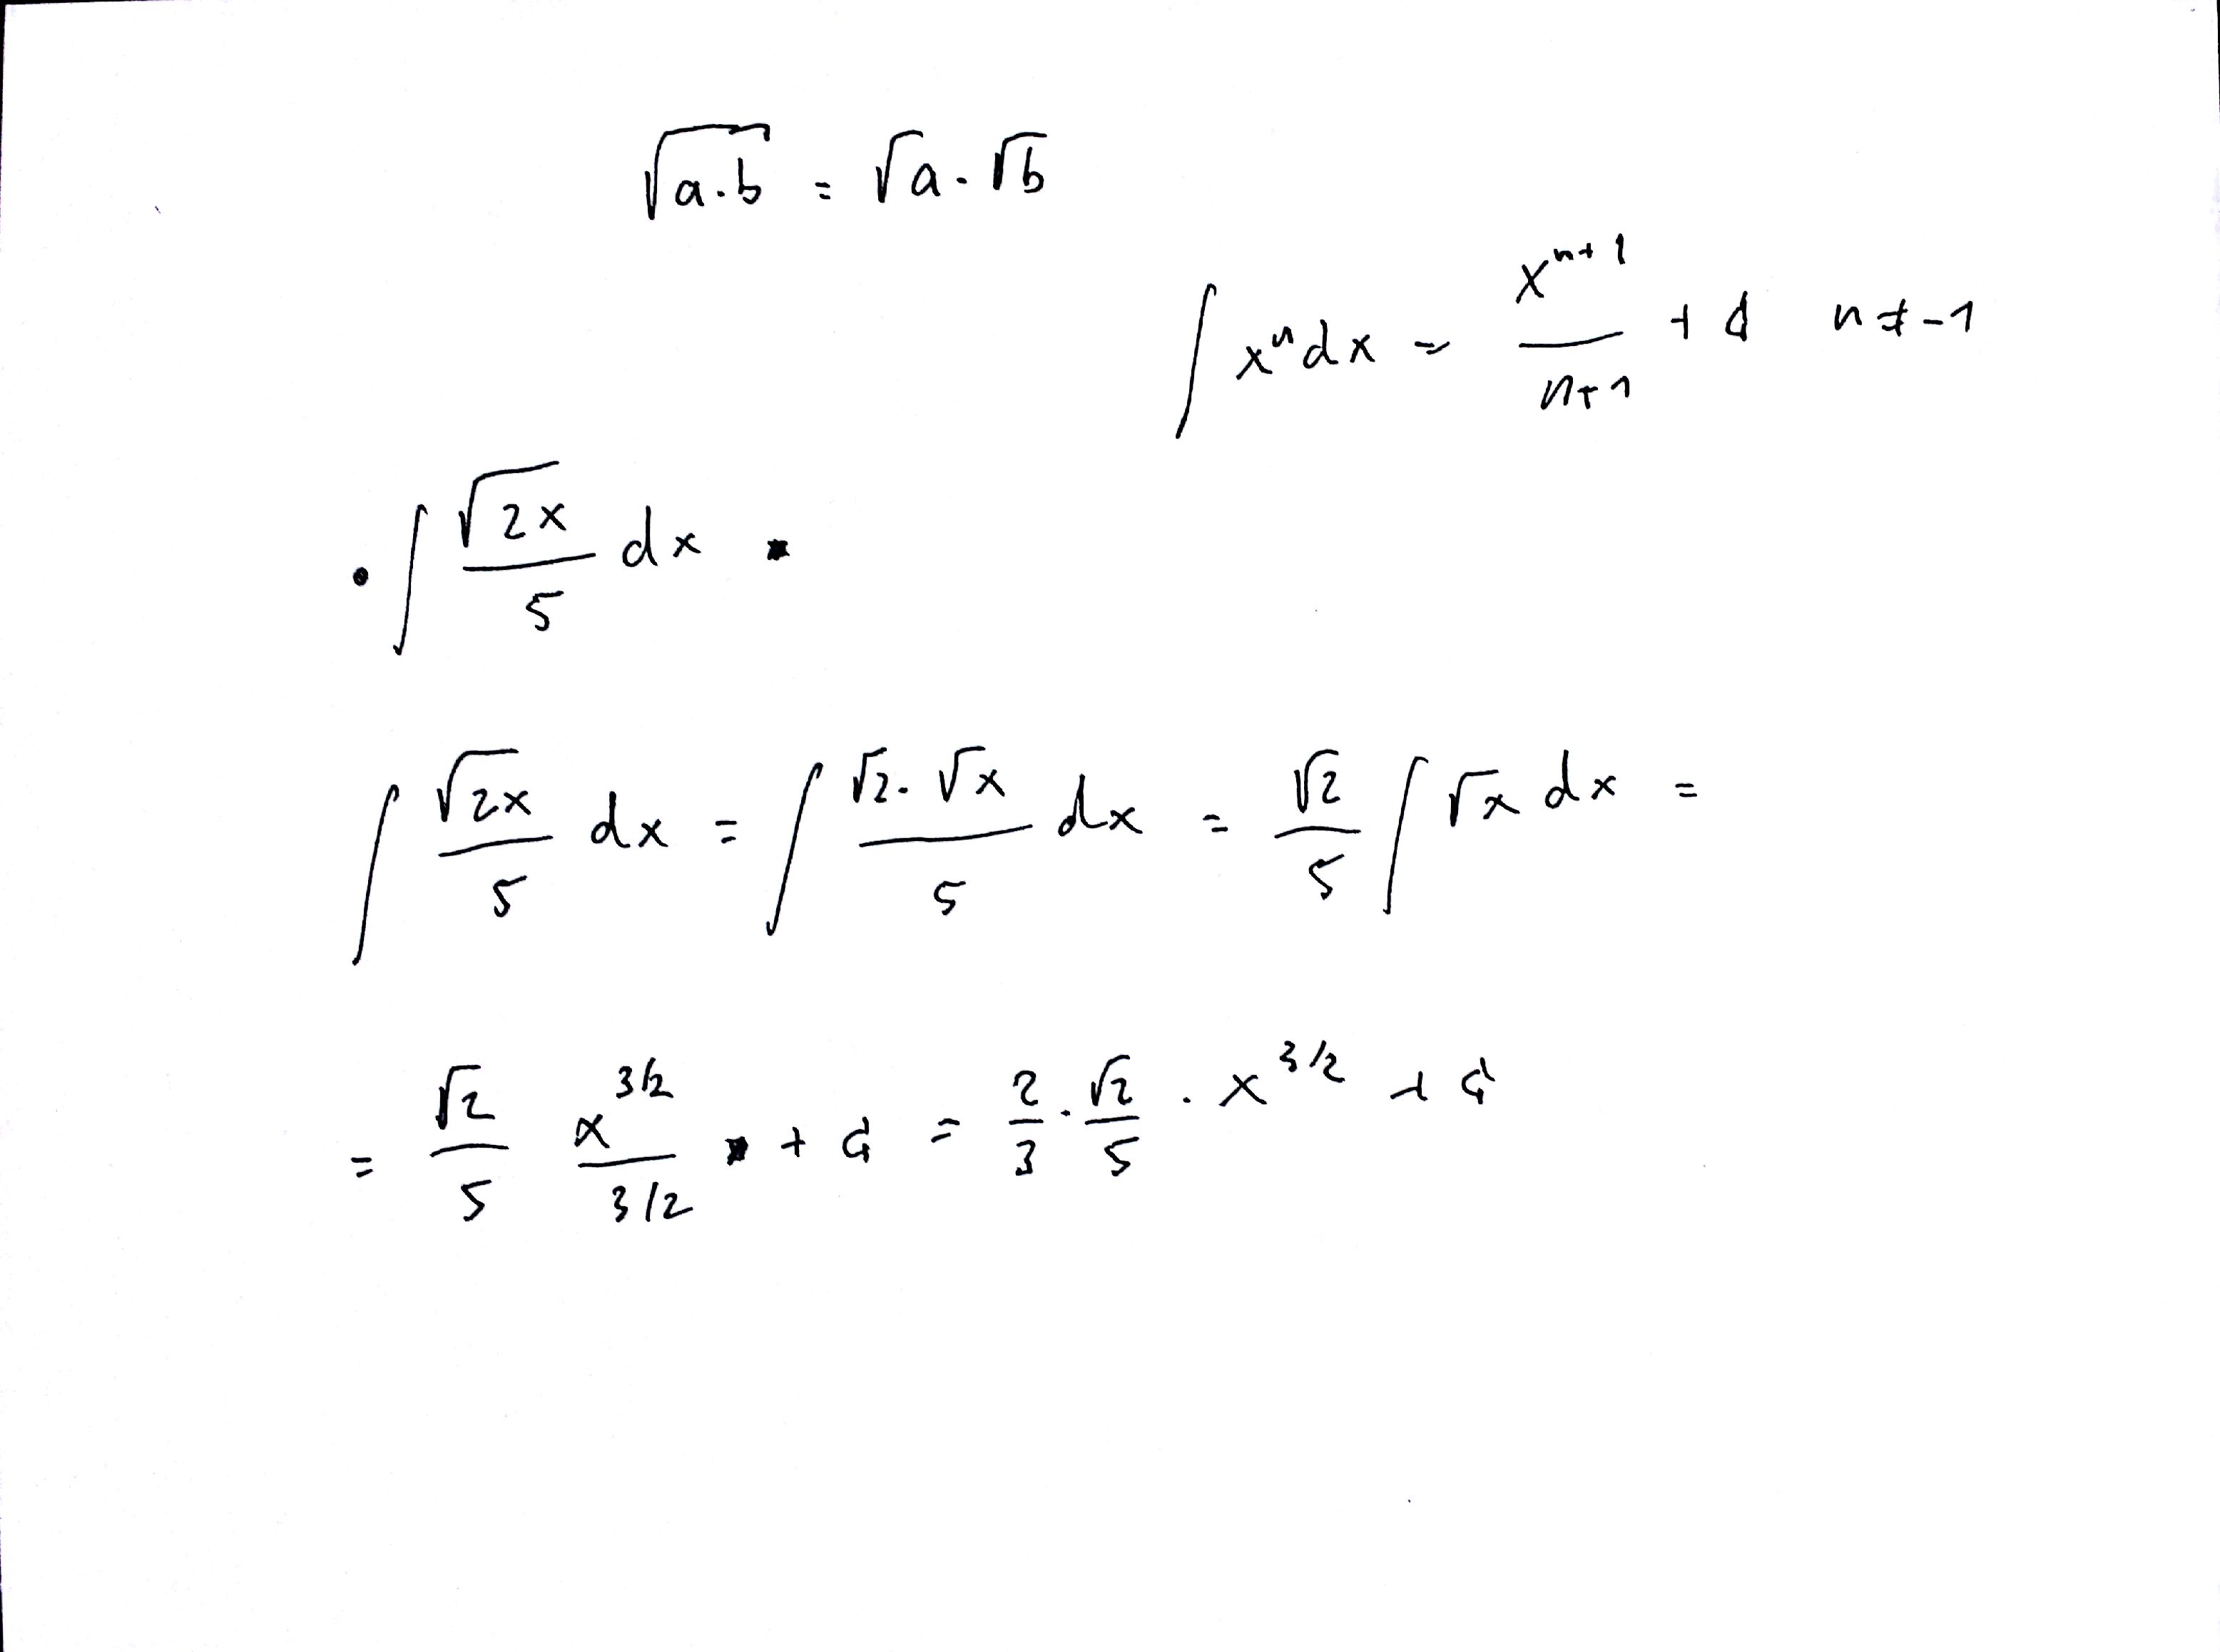 √(a·b) = √a · √b
∫ xⁿ dx = xⁿ⁺¹/(n+1) + C n ≠ -1
• ∫ √(2x)/5 dx
∫ √(2x)/5 dx = ∫ (√2 · √x)/5 dx = √2/5 ∫ √x dx =
= √2/5 x^(3/2)/(3/2) + C = 2/3 · √2/5 · x^(3/2) + C